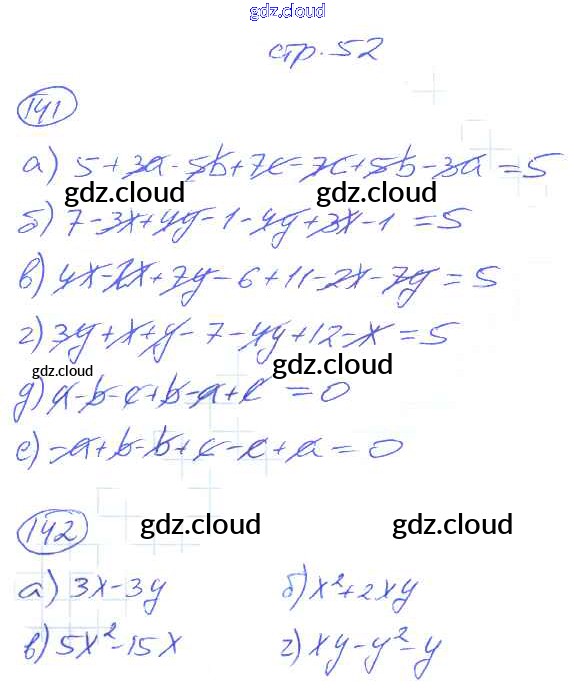 gdz.cloud
стр. 52
141
а) 5+3a-5b+7c-7c+5b-3a=5
gdz.cloud gdz.cloud
б) 7-3x+4y-1-4y+3x-1=5
в) 4x-2x+7y-6+11-2x-7y=5
г) 3y+x+y-7-4y+12-x=5
gdz.cloud gdz.cloud
д) a-b-c+b-a+c=0
е) -a+b-b+c-c+a=0
142 gdz.cloud gdz.cloud
а) 3x-3y б) x²+2xy
в) 5x²-15x г) xy-y²-y